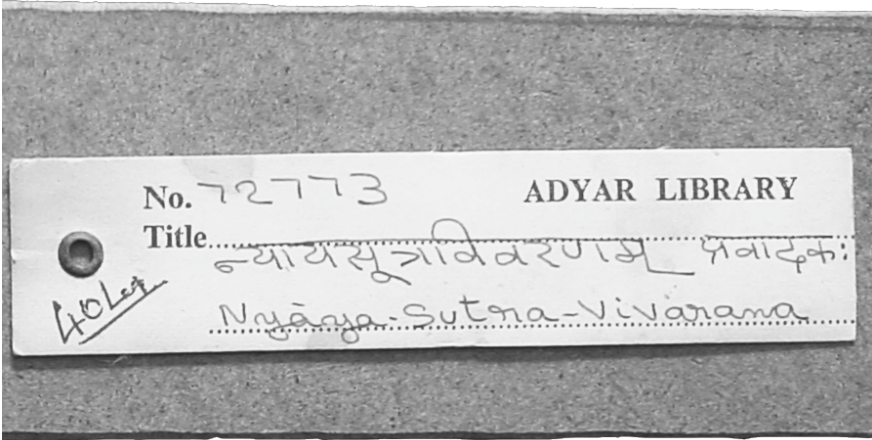 No. 72773 ADYAR LIBRARY
Title न्यायसूत्रविवरणम्
Nyāya-Sutra-Vivarana